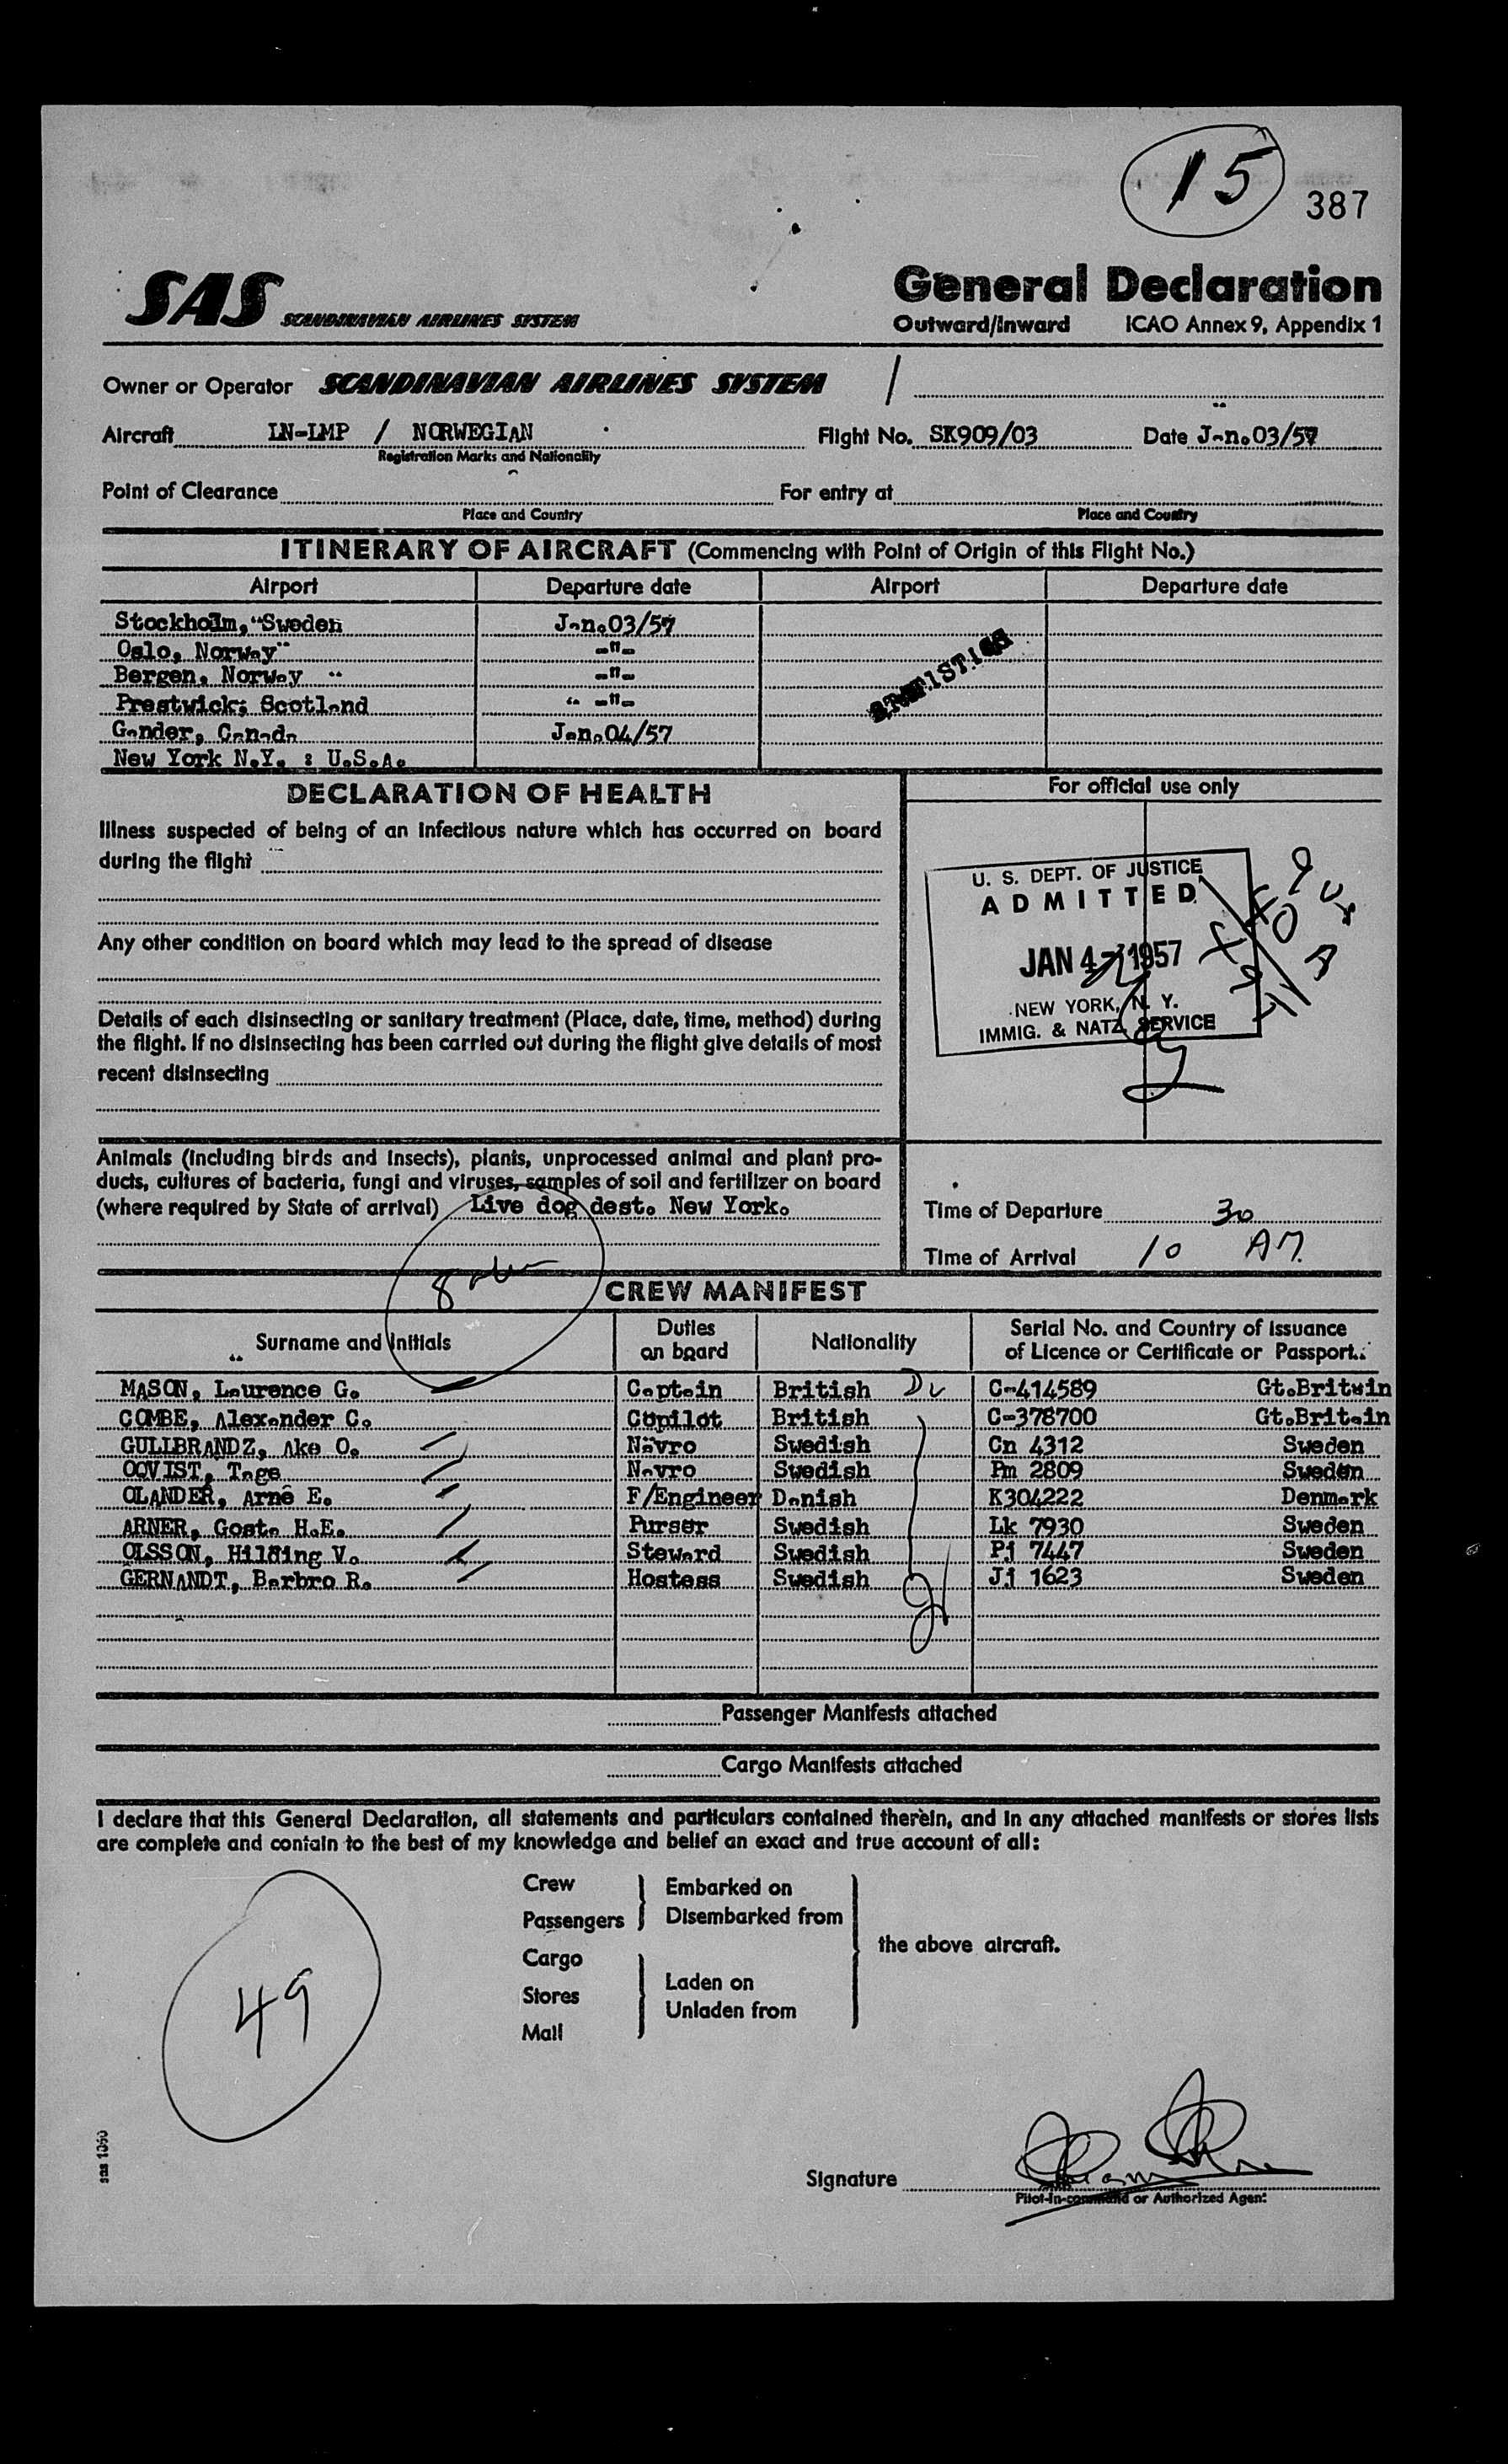 15
387
SAS SCANDINAVIAN AIRLINES SYSTEM
General Declaration
Outward/Inward ICAO Annex 9, Appendix 1
Owner or Operator SCANDINAVIAN AIRLINES SYSTEM /
Aircraft LN-LMP / NORWEGIAN Flight No. SK909/03 Date Jan.03/57
Registration Marks and Nationality
Point of Clearance For entry at
Place and Country Place and Country
ITINERARY OF AIRCRAFT (Commencing with Point of Origin of this Flight No.)
Airport Departure date Airport Departure date
Stockholm, Sweden Jan.03/57
Oslo, Norway -"-
Bergen, Norway -"-
Prestwick; Scotland -"-
Gander, Canada Jan.04/57
New York N.Y. : U.S.A.
STATISTICS
DECLARATION OF HEALTH
For official use only
Illness suspected of being of an infectious nature which has occurred on board
during the flight
Any other condition on board which may lead to the spread of disease
Details of each disinsecting or sanitary treatment (Place, date, time, method) during
the flight. If no disinsecting has been carried out during the flight give details of most
recent disinsecting
U. S. DEPT. OF JUSTICE
ADMITTED
JAN 4 - 1957
NEW YORK, N. Y.
IMMIG. & NATZ. SERVICE
Animals (including birds and insects), plants, unprocessed animal and plant pro-
ducts, cultures of bacteria, fungi and viruses, samples of soil and fertilizer on board
(where required by State of arrival) Live dog dest. New York.
Time of Departure 30
Time of Arrival 10 AM
8
CREW MANIFEST
Surname and Initials Duties on board Nationality Serial No. and Country of Issuance of Licence or Certificate or Passport.
MASON, Laurence G. Captain British C-414589 Gt.Britain
COMBE, Alexander C. Copilot British C-378700 Gt.Britain
GULLBRANDZ, Ake O. Navro Swedish Cn 4312 Sweden
OQVIST, Tage Navro Swedish Pm 2809 Sweden
OLANDER, Arne E. F/Engineer Danish K304222 Denmark
ARNER, Gosta H.E. Purser Swedish Lk 7930 Sweden
OLSSON, Hilding V. Steward Swedish Pj 7447 Sweden
GERNANDT, Barbro R. Hostess Swedish Jj 1623 Sweden
Passenger Manifests attached
Cargo Manifests attached
I declare that this General Declaration, all statements and particulars contained therein, and in any attached manifests or stores lists
are complete and contain to the best of my knowledge and belief an exact and true account of all:
Crew
Passengers
Embarked on
Disembarked from
Cargo
Stores
Mail
Laden on
Unladen from
the above aircraft.
49
Signature
Pilot-in-command or Authorized Agent